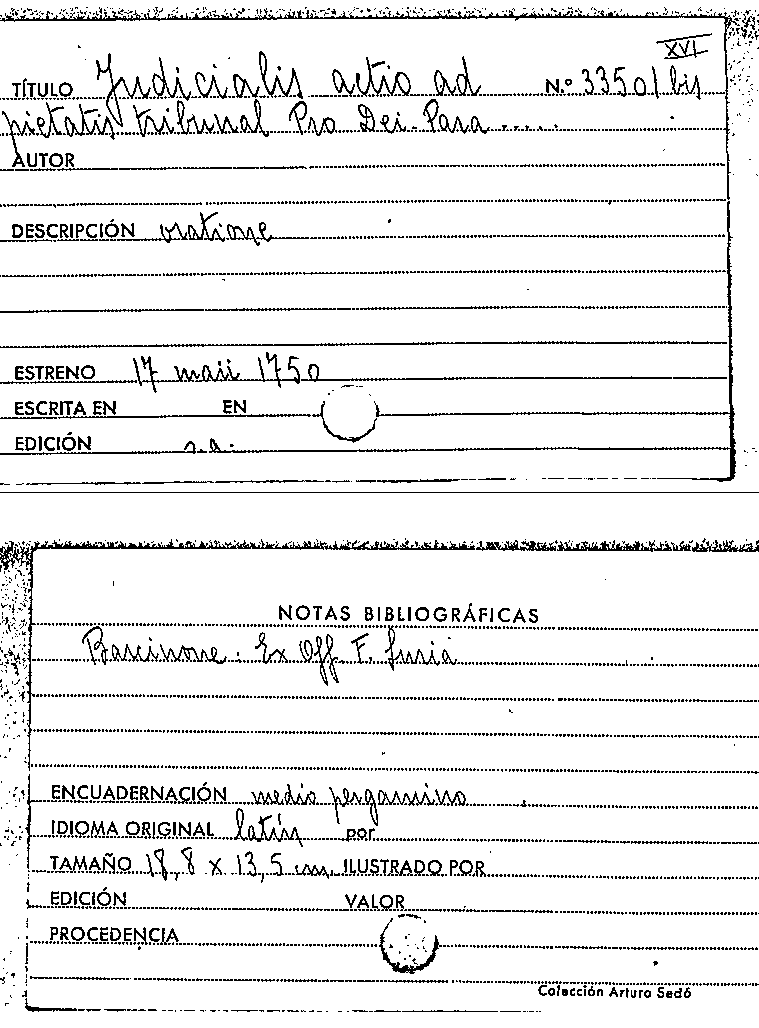 XVI
TÍTULO Judicialis actio ad N.º 33501 bis
pietatis tribunal Pro Dei-Para .....
AUTOR
DESCRIPCIÓN oratione
ESTRENO 17 maii 1750
ESCRITA EN EN
EDICIÓN s.a.
NOTAS BIBLIOGRÁFICAS
Barcinone. Ex Off. F. Suria
ENCUADERNACIÓN medio pergamino
IDIOMA ORIGINAL latín por
TAMAÑO 18,8 x 13,5 cm. ILUSTRADO POR
EDICIÓN VALOR
PROCEDENCIA
Colección Arturo Sedó